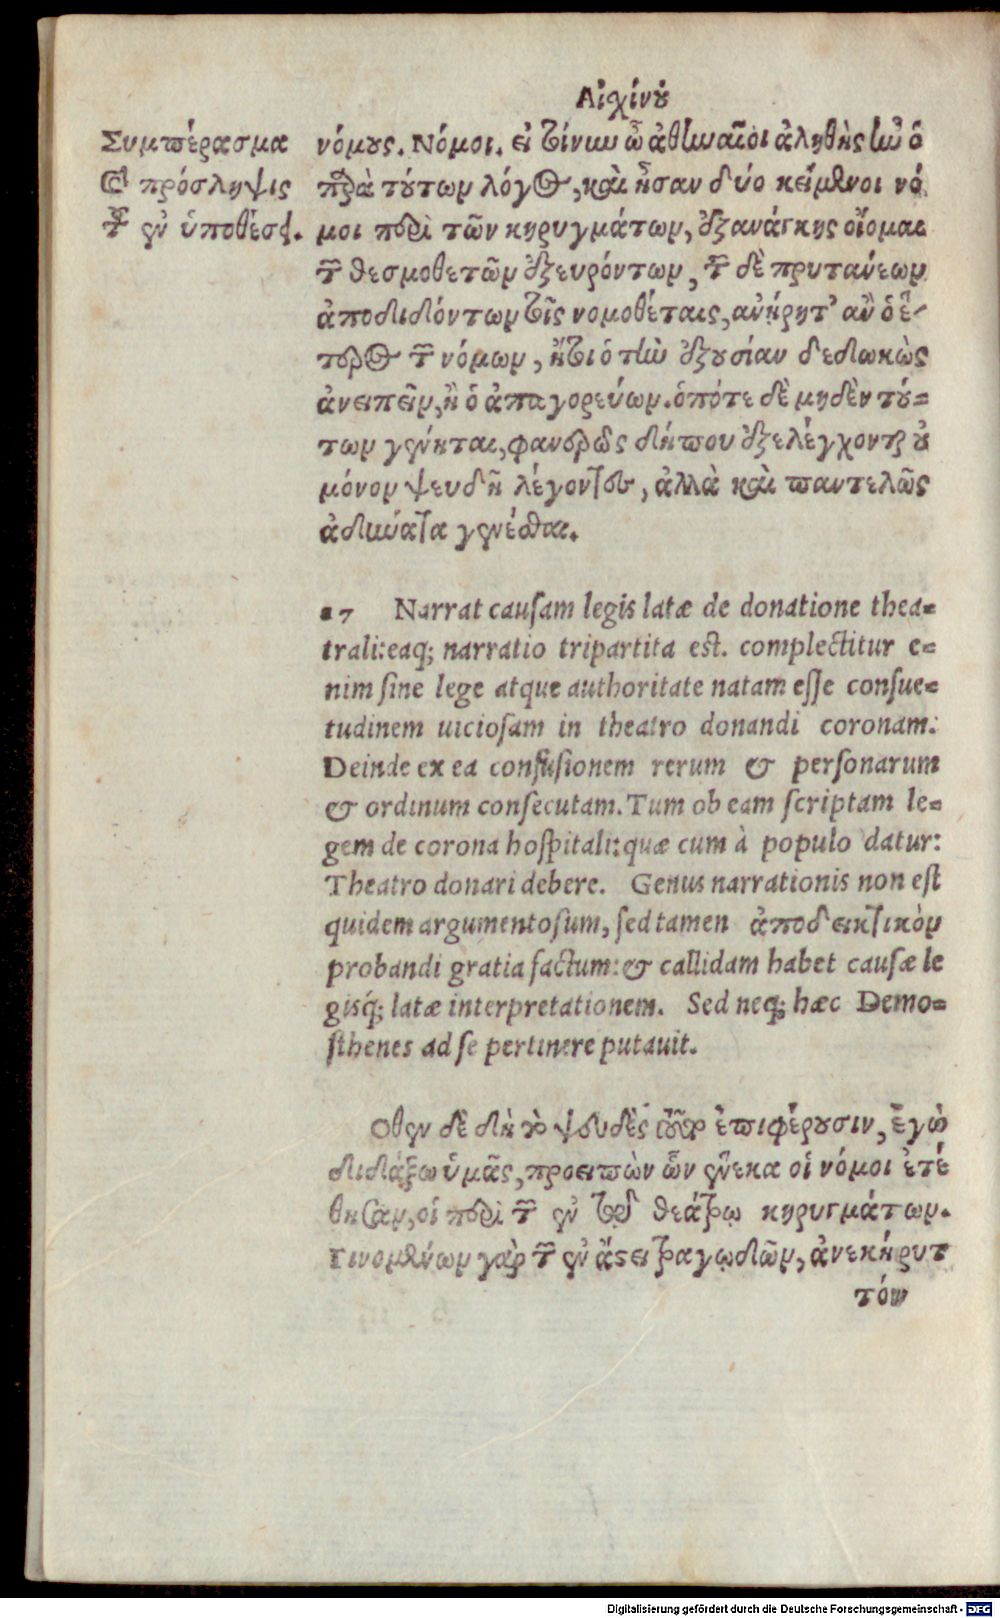 Αἰσχίνου
Συμπέρασμα
καὶ πρόσληψις
τῆς ἐν ὑποθέσει.
νόμους. Νόμοι. εἰ τοίνυν ὦ ἀθηναῖοι ἀληθὴς ἦν ὁ
παρὰ τούτων λόγος, καὶ ἦσαν δύο κείμενοι νό
μοι περὶ τῶν κηρυγμάτων, ἐξανάγκης οἶομαι
τῶν θεσμοθετῶν ἐξευρόντων, τῶν δὲ πρυτανέων
ἀποδιδόντων τοῖς νομοθέταις, ανῄρητ' ἂν ὁ ἕ-
τερος τῶν νόμων, ἤτοι ὁ τὴν ἐξουσίαν δεδωκὼς
ἀνειπεῖν, ἢ ὁ ἀπαγορεύων. ὁπότε δὲ μηδὲν τού=
των γεγένηται, φανερῶς δήπου ἐξελέγχονται οὐ
μόνον ψευδῆ λέγοντες, ἀλλὰ καὶ παντελῶς
ἀδύνατα γενέσθαι.
27 Narrat causam legis latæ de donatione thea=
trali: eaq; narratio tripartita est. complectitur e=
nim sine lege atque authoritate natam esse consue=
tudinem uiciosam in theatro donandi coronam:
Deinde ex ea confusionem rerum & personarum
& ordinum consecutam. Tum ob eam scriptam le=
gem de corona hospitali: quæ cum à populo datur:
Theatro donari debere. Genus narrationis non est
quidem argumentosum, sed tamen ἀποδεικτικὸν
probandi gratia factum: & callidam habet causæ le
gisq́; latæ interpretationem. Sed neq; hæc Demo=
sthenes ad se pertinere putauit.
Οθεν δὲ δὴ τὸ ψευδὲς τοῦτο ἐπιφέρουσιν, ἐγὼ
διδάξω ὑμᾶς, προειπὼν ὧν ἕνεκα οἱ νόμοι ἐτέ
θησαν, οἱ περὶ τῶν ἐν τῷ θεάτρῳ κηρυγμάτων.
Γινομένων γὰρ τῶν ἐν ἄστει τραγῳδῶν, ἀνεκήρυτ
τόν
Digitalisierung gefördert durch die Deutsche Forschungsgemeinschaft - DFG